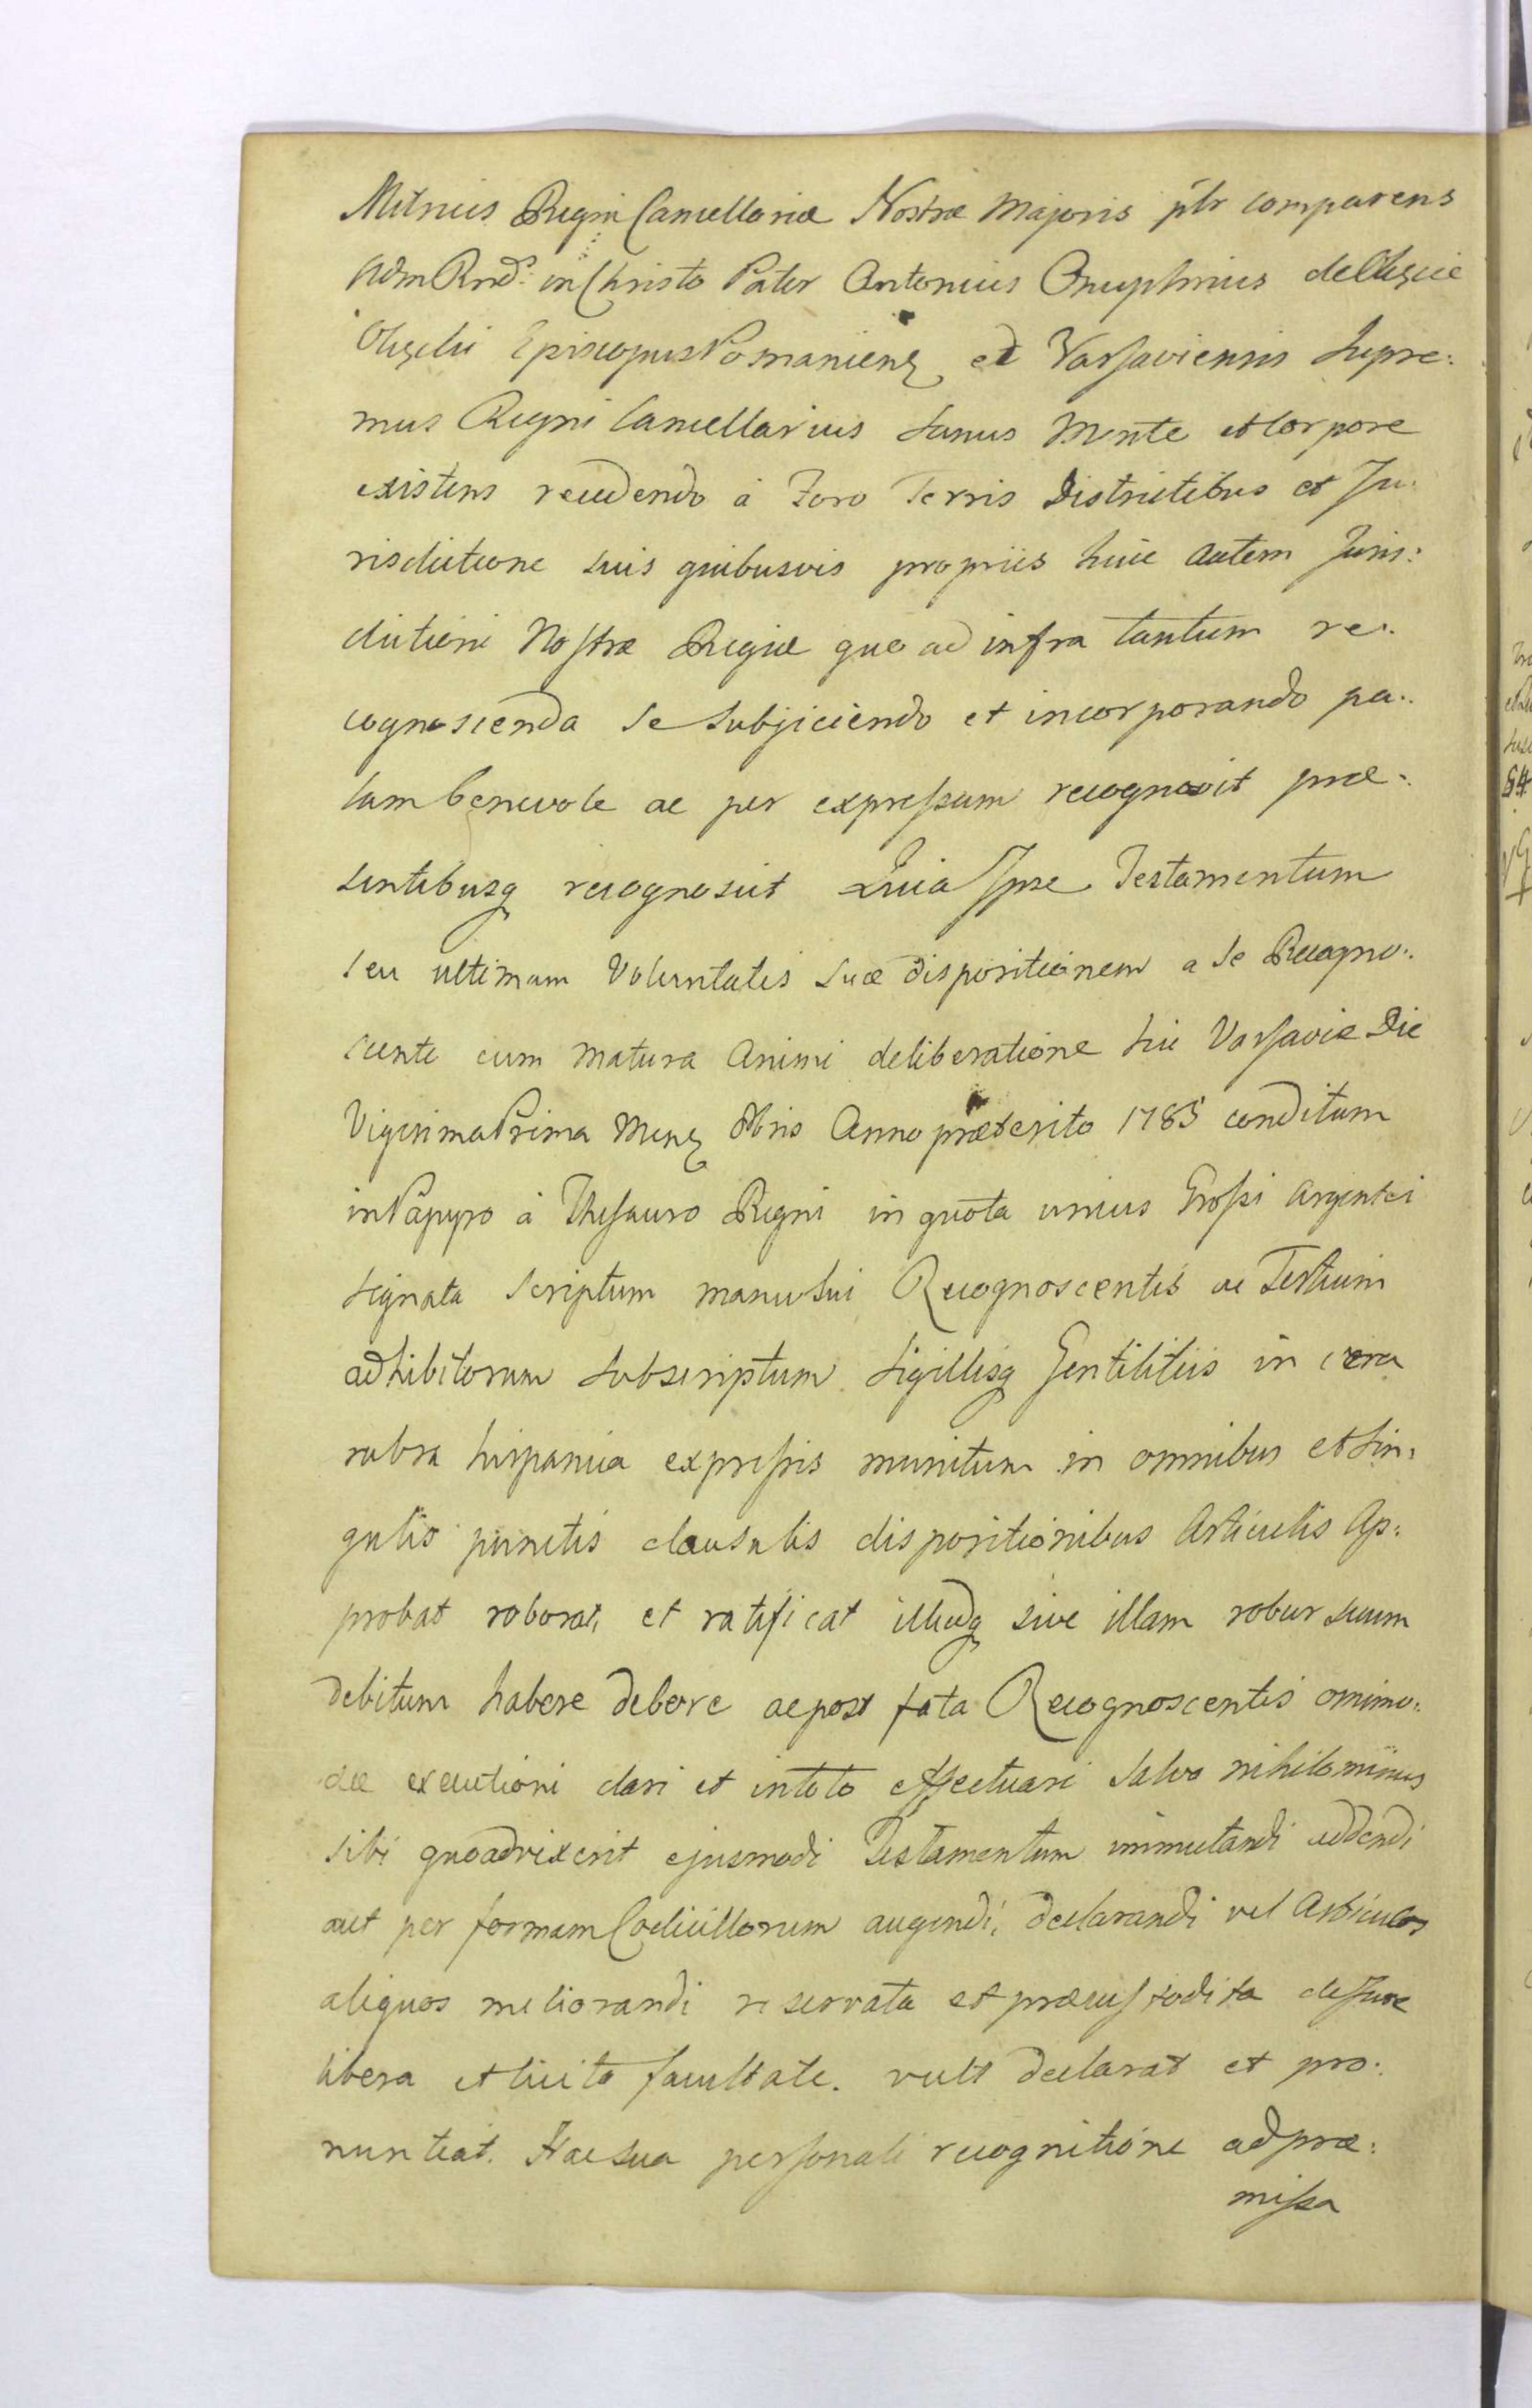 Metricis Regni Cancellariæ Nostræ Majoris pltr comparens
Adm Rnd: in Christo Pater Antonius Onuphrius de Okęcie
Okęcki Episcopus Posnaniens et Varsaviensis Supre:
mus Regni Cancellarius Sanus Mente et Corpore
existens recedendo à Foro Terris Districtibus et Ju:
risdictione suis quibusvis propriis huic autem Juris:
dictioni Nostræ Regiæ quo ad infra tantum re:
cognoscenda Se Subjiciendo et incorporando pa:
lam benevole ac per expressum recognovit præ:
sentibusq recognoscit Quia Ipse Testamentum
Seu ultimam Voluntatis Suæ dispositionem a Se Recogno:
scente cum Matura Animi deliberatione hic Varsaviæ Die
Vigesima Prima Mens Xbris Anno præterito 1785 conditum
in Papyro à Thesauro Regni in quota unius Grossi Argentei
Signata Scriptum manu Sui Recognoscentis ac Testium
adhibitorum Subscriptum Sigillisq Gentilitiis in cera
rubra hispanica expressis munitum in omnibus et Sin:
gulis punctis clausulis dispositionibus Articulis Ap:
probat roborat, et ratificat illudq sive illam robur suum
debitum habere debere ac post fata Recognoscentis omimo:
dæ executioni dari et in toto effectuari Salva nihilominus
Sibi quoad vixerit ejusmodi Testamentum immutandi addendi
aut per formam Codicillorum augendi, declarandi vel Articulos
aliquos meliorandi reservata et præcustodita de Jure
libera et licita facultate. vult declarat et pro:
nuntiat. Hac Sua personali recognitione ad præ:
missa